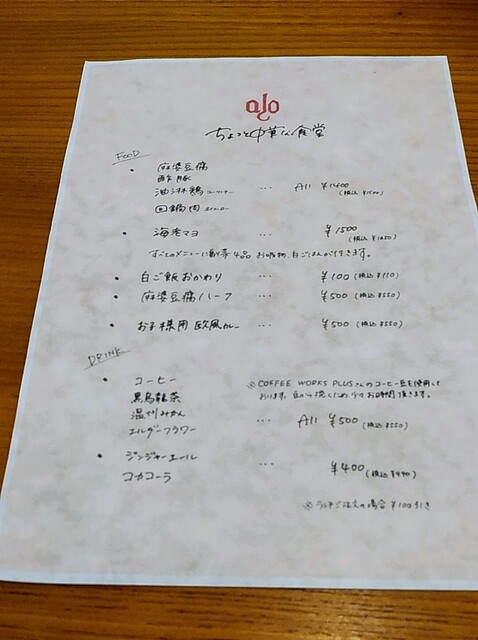 alo
ちょっと中華な食堂
FOOD
・ 麻婆豆腐
酢豚
油淋鶏 ユーリンチー … All ¥1400 (税込¥1540)
回鍋肉 ホイコーロー
・ 海老マヨ … ¥1500 (税込¥1650)
すべてのメニューに副菜4品 お吸物、白ごはんが付きます。
・ 白ご飯おかわり … ¥100 (税込¥110)
・ 麻婆豆腐ハーフ … ¥500 (税込¥550)
・ お子様用 欧風カレー … ¥500 (税込¥550)
DRINK
・ コーヒー ※COFFEE WORKS PLUSさんのコーヒー豆を使用して
黒烏龍茶 おります。豆から挽くため少々お時間頂きます。
温州みかん … All ¥500 (税込¥550)
エルダーフラワー
・ ジンジャーエール … ¥400 (税込¥440)
コカコーラ
※ランチご注文の場合 ¥100引き